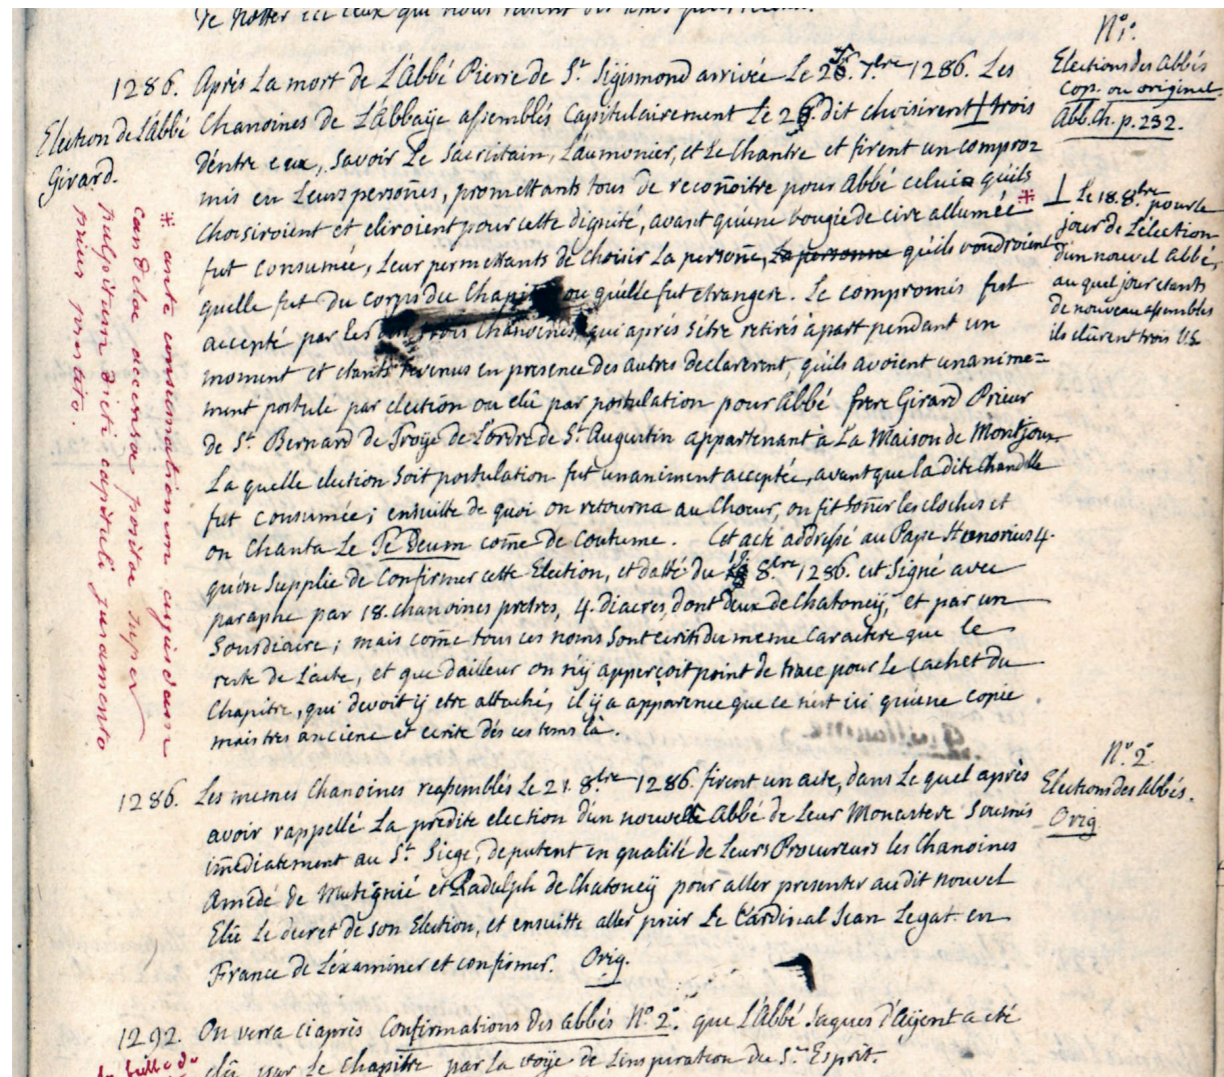 de notter ici ceux qui nous
N.° 1.°
Elections des Abbés
Cop. ou original.
Abb. Ch. p. 232.
1286. Après La mort de L'Abbé Pierre de S.t Sigismond arrivée Le 7.bre 1286. Les
Election de L'abbé Girard.
Chanoines de L'Abbaÿe assemblés Capitulairement Le dit choisirent trois
d'entre eux, savoir Le Sacristain, L'aumonier, et Le Chantre et firent un compro=
mis en Leurs persoñes, promettants tous de recoñoitre pour Abbé celui qu'ils
choisiroient et eliroient pour cette dignité, avant qu'une bougie de cire allumée *
fut consumée, Leur permettants de choisir La persoñe, La personne qu'ils voudroient
quelle fut du corps du Chapitre ou qu'elle fut etrangere. Le compromis fut
accepté par Les trois Chanoines, qui après s'étre retirés à part pendant un
moment et etants revenus en presence des autres declarerent, qu'ils avoient unanime=
ment postulé par election ou elû par postulation pour Abbé frere Girard Prieur
de S.t Bernard de Troÿe de L'ordre de S.t Augustin appartenant à La Maison de Montjoux
La quelle election soit postulation fut unaniment acceptée, avant que la dite Chandelle
fut consumée; ensuitte de quoi on retourna au Choeur, on fit soñer les cloches et
on chanta Le Te Deum coñie de coutume. Cet acte addressé au Pape Honorius 4.
qu'on supplie de Confirmer cette Election, et datté du 8.bre 1286. est signé avec
paraphe par 18. chanoines pretres, 4. diacres, dont deux de Chatoneÿ, et par un
Sousdiacre; mais coñie tous ces noms sont ecrits du meme Caractere que le
reste de L'acte, et que d'ailleur on n'ÿ apperçoit point de trace pour Le cachet du
Chapitre, qui devoit ÿ etre attaché, il ÿ a apparence que ce n'est ici qu'une copie
mais tres anciene et ecrite dés ces tems là.
⊥ Le 18. 8.bre pour le
jour de L'élection
d'un nouvel Abbé,
au quel jour etants
de nouveau assemblés
ils elûrent trois
* ante consumationem cujusdam
candelae accensae positae super
pulpitum dicti capituli juramento
prius praestito.
N.° 2.°
Elections des Abbés.
Orig
1286. Les memes Chanoines reassemblés Le 21. 8.bre 1286. firent un acte, dans Le quel après
avoir rappellé La predite election d'un nouvel Abbé de Leur Monastere soumis
im̃ediatement au S.t Siege, deputent en qualité de Leurs Procureurs les Chanoines
Amedé de Mutignié et Radulph de Chatoneÿ pour aller presenter au dit nouvel
Elû Le decret de son Election, et ensuitte aller prier Le Cardinal Jean Legat en
France de L'éxaminer et confirmer. Orig.
1292. On verra ci après Confirmations des abbés N.° 2.° que L'Abbé Jaques d'Aÿent a été
elû par Le Chapitre par La voÿe de L'inspiration du S.t Esprit.